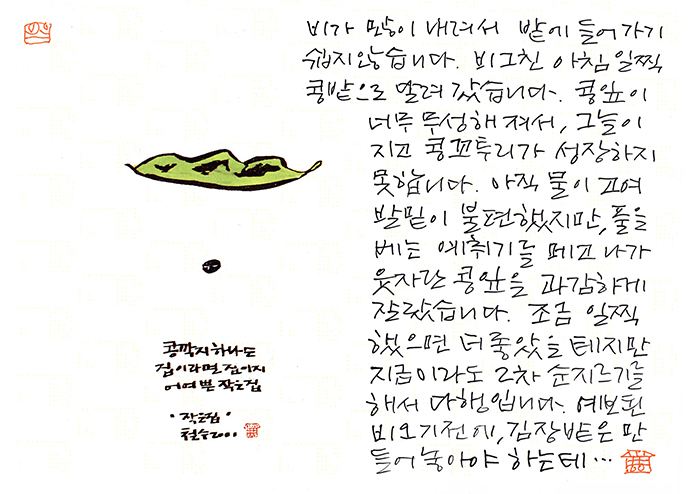 비가 많이 내려서 밭에 들어가기
쉽지않습니다. 비그친 아침 일찍
콩밭으로 달려 갔습니다. 콩잎이
너무 무성해져서, 그늘이
지고 콩꼬투리가 성장하지
못합니다. 아직 물이 고여
발밑이 불편했지만, 풀을
베는 예취기를 메고 나가
웃자란 콩잎을 과감하게
잘랐습니다. 조금 일찍
했으면 더 좋았을 테지만
지금이라도 2차 순지르기를
해서 다행입니다. 예보된
비오기전에, 김장밭은 만
들어 놓아야 하는데...
콩깍지 하나도
집이라면 집이지
어여쁜 작은집
"작은집"
철수2001